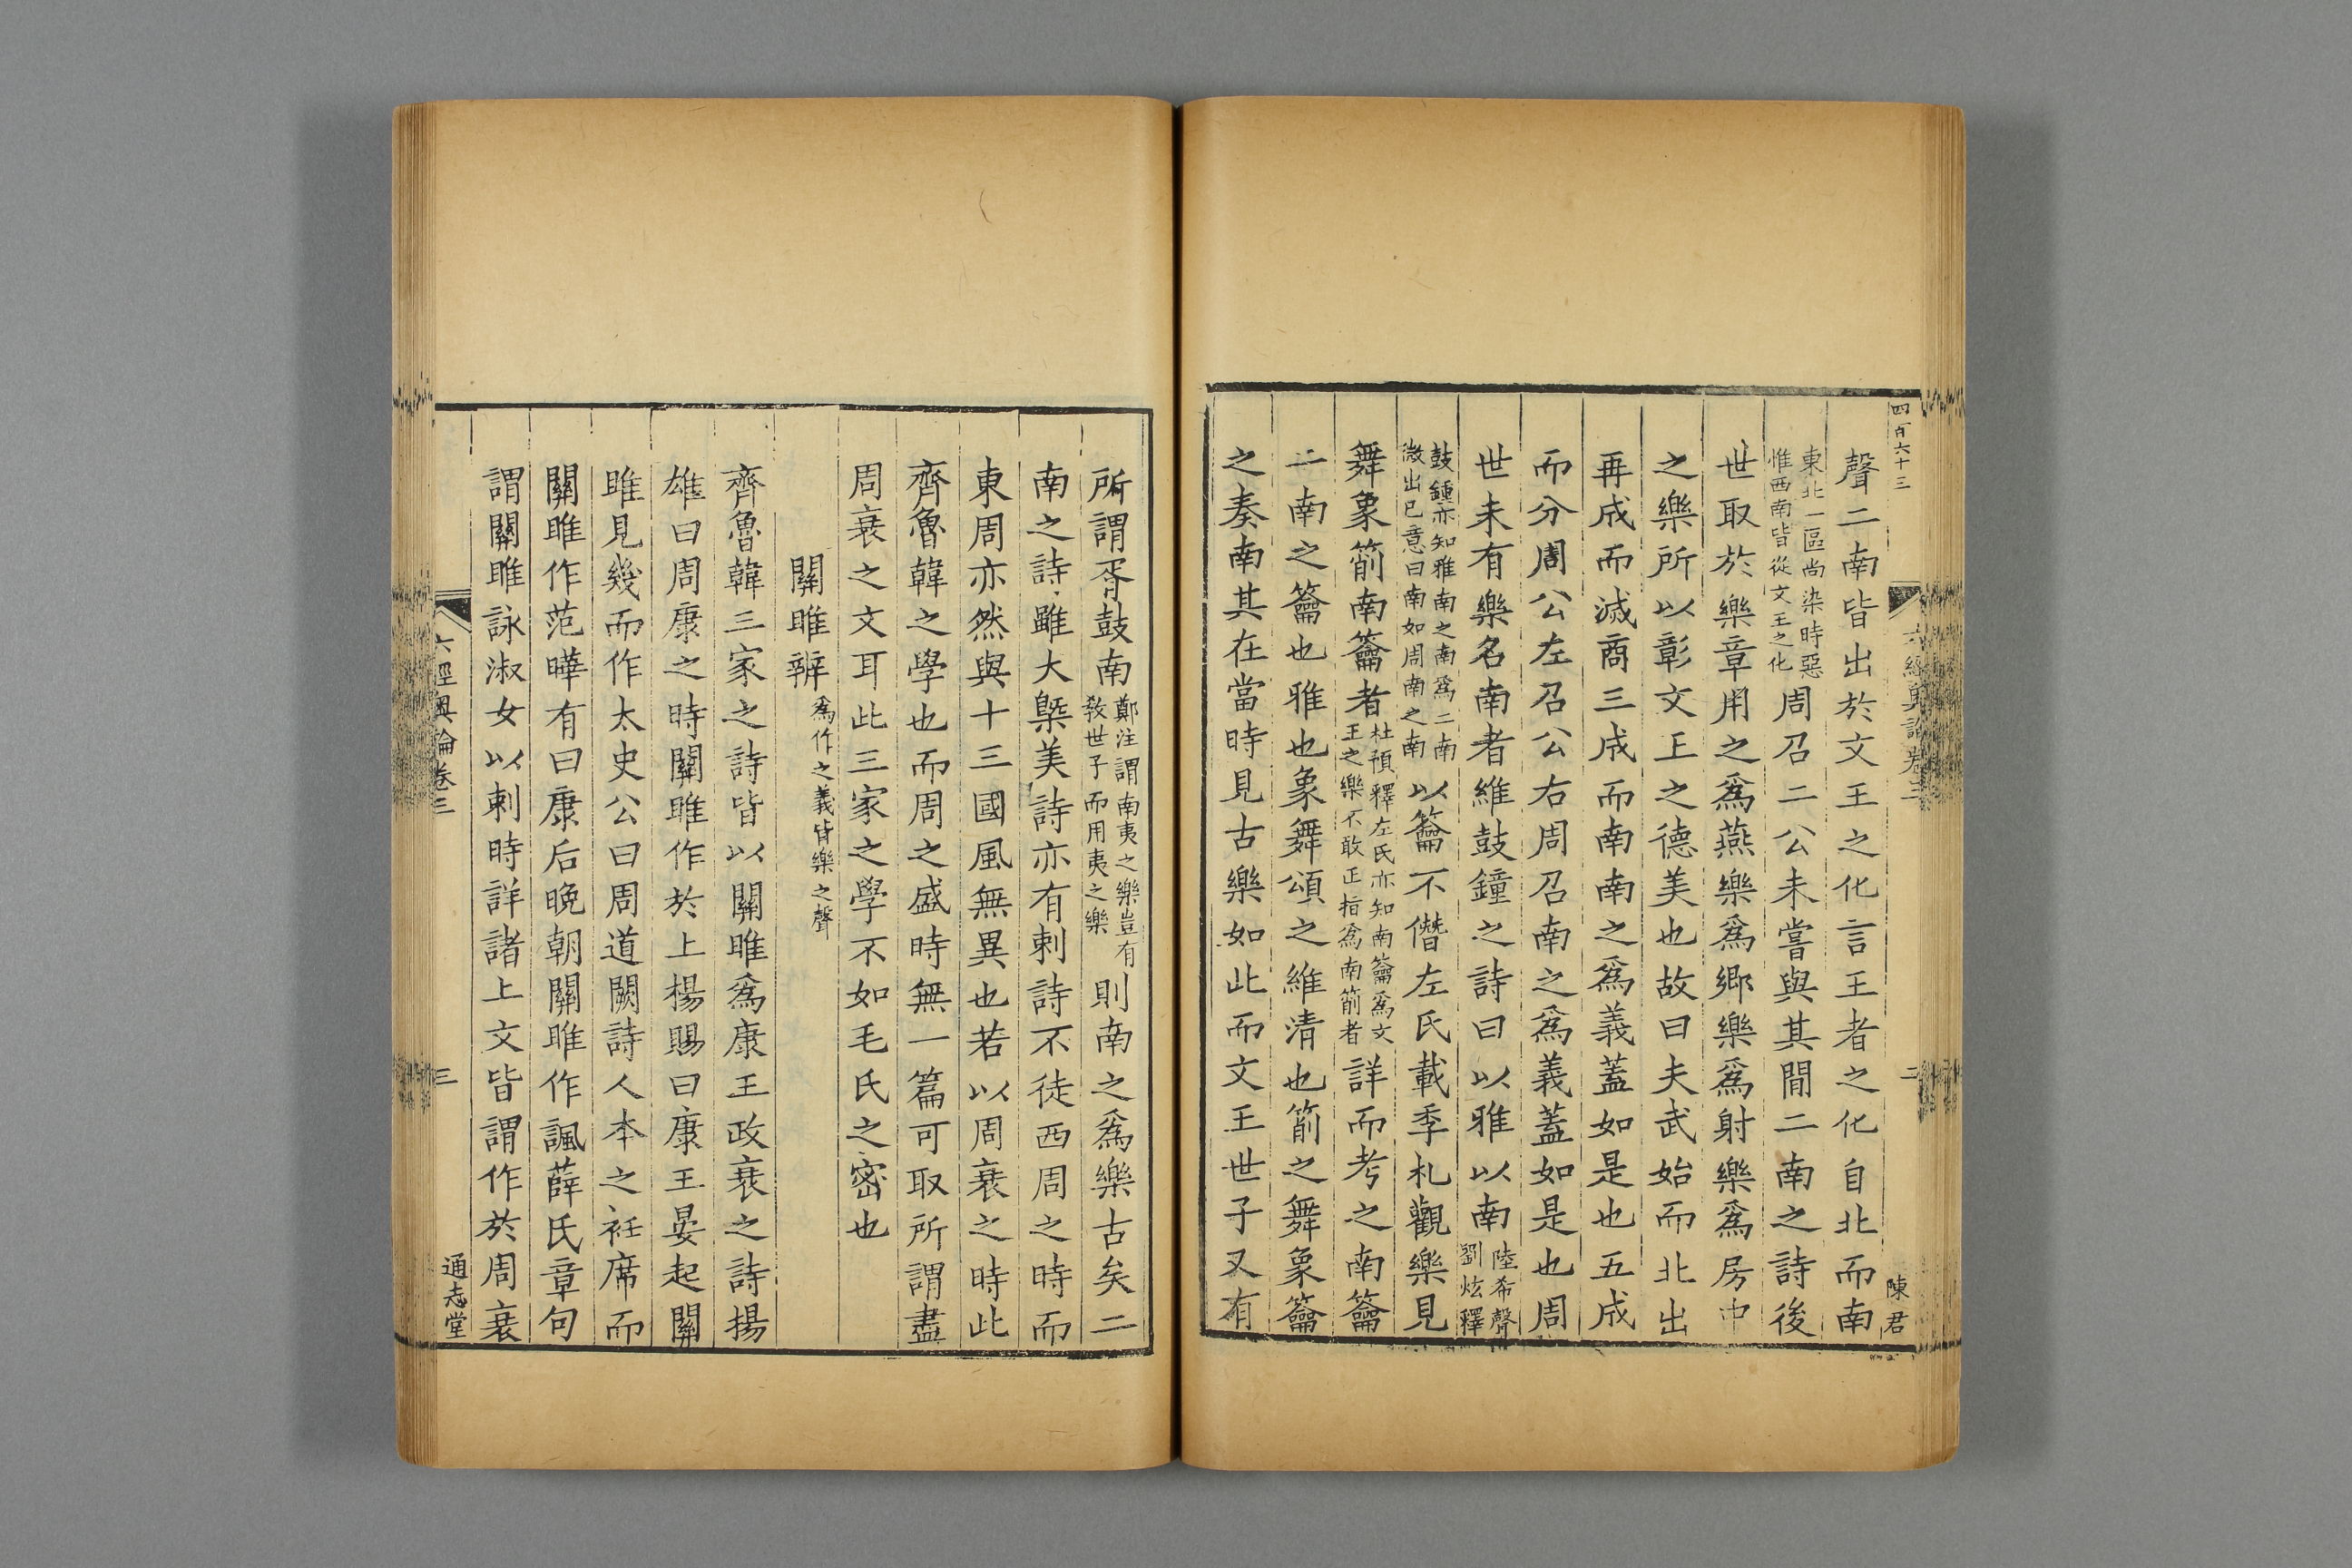 四百六十三
六經奧論卷三
二
陳君
聲二南皆出於文王之化言王者之化自北而南
東北一區尚染時惡惟西南皆從文王之化周召二公未嘗與其間二南之詩後
世取於樂章用之爲燕樂爲鄉樂爲射樂爲房中
之樂所以彰文王之德美也故曰夫武始而北出
再成而滅商三成而南南之爲義蓋如是也五成
而分周公左召公右周召南之爲義蓋如是也周
世未有樂名南者維鼓鐘之詩曰以雅以南陸希聲劉炫釋
鼓鍾亦知雅南之南爲二南微出已意曰南如周南之南以籥不僭左氏載季札觀樂見
舞象箾南籥者杜預釋左氏亦知南籥爲文王之樂不敢正指爲南箾者詳而考之南籥
二南之籥也雅也象舞頌之維清也箾之舞象籥
之奏南其在當時見古樂如此而文王世子又有
所謂胥鼓南鄭注謂南夷之樂豈有敎世子而用夷之樂則南之爲樂古矣二
南之詩雖大槩美詩亦有刺詩不徒西周之時而
東周亦然與十三國風無異也若以周衰之時此
齊魯韓之學也而周之盛時無一篇可取所謂盡
周衰之文耳此三家之學不如毛氏之密也
關雎辨爲作之義皆樂之聲
齊魯韓三家之詩皆以關雎爲康王政衰之詩揚
雄曰周康之時關雎作於上楊賜曰康王晏起關
雎見幾而作太史公曰周道闕詩人本之衽席而
關雎作范曄有曰康后晚朝關雎作諷薛氏章句
謂關雎詠淑女以刺時詳諸上文皆謂作於周衰
六經奧論卷三
三
通志堂